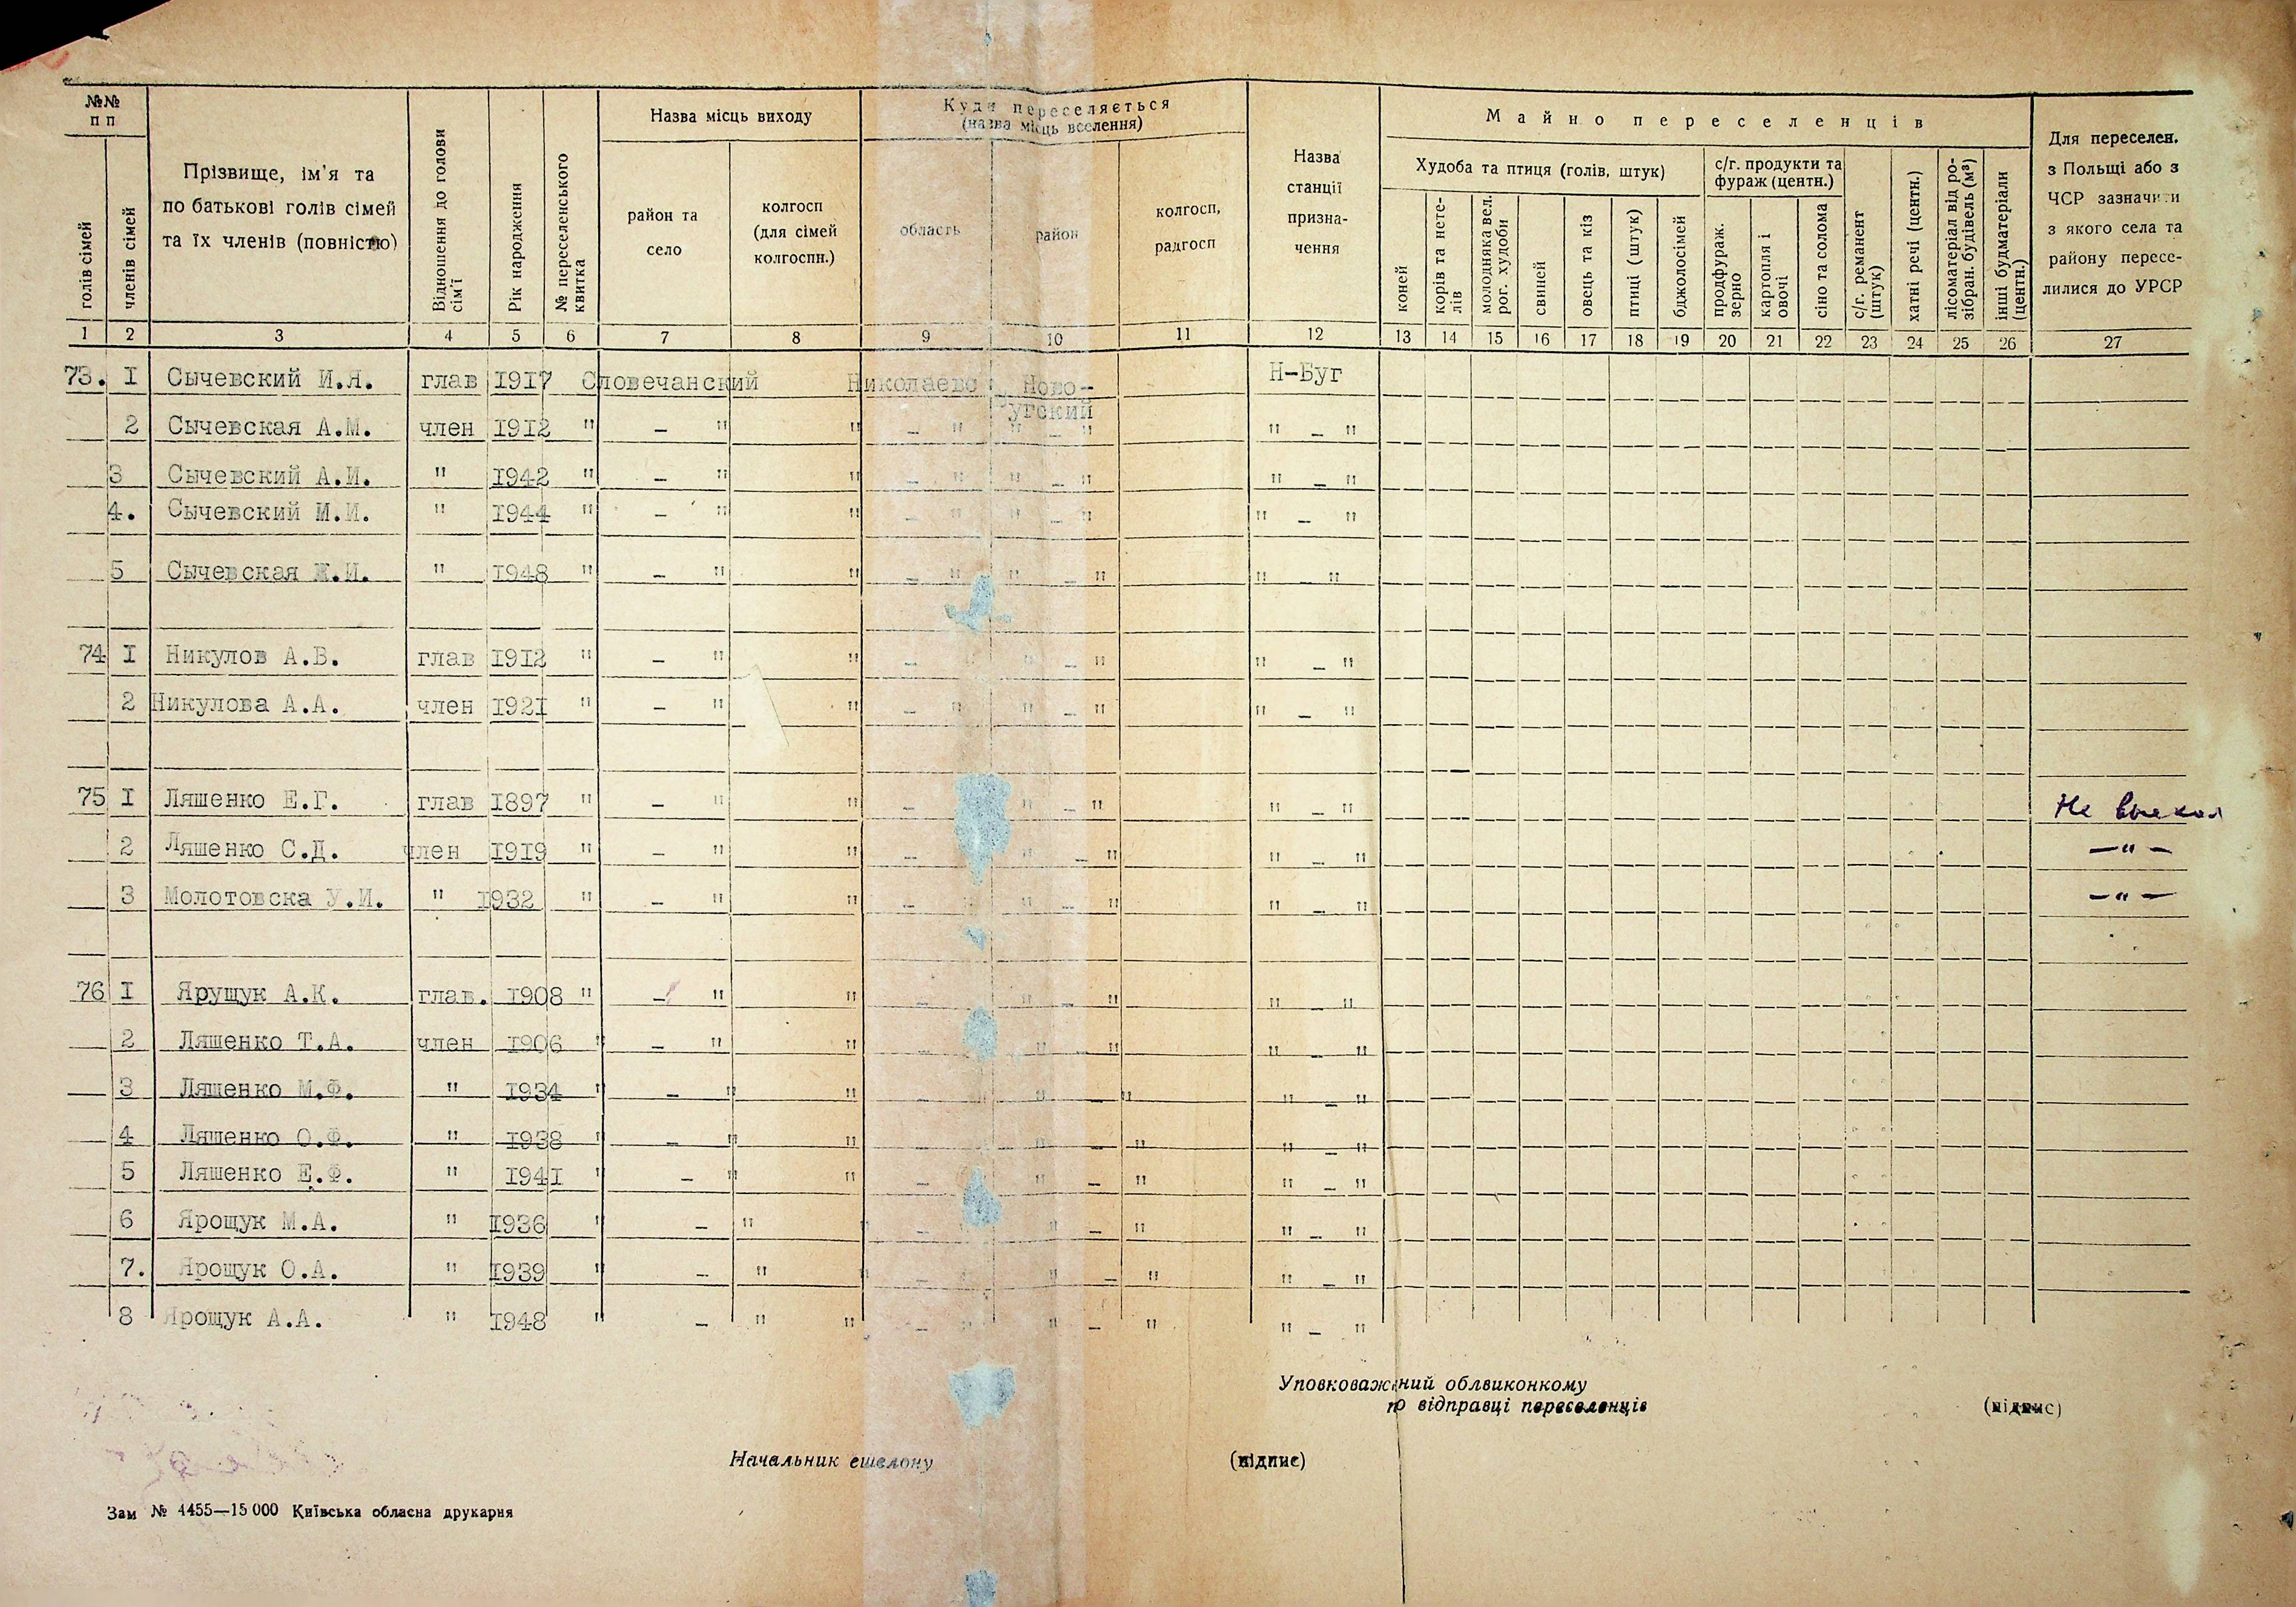 №№ п п
голів сімей
членів сімей
Прізвище, ім'я та
по батькові голів сімей
та їх членів (повністю)
Відношення до голови сім'ї
Рік народження
№ переселенського квитка
Назва місць виходу
район та
село
колгосп
(для сімей
колгоспн.)
Куди переселяється
(назва місць вселення)
область
район
колгосп,
радгосп
Назва
станції
призна-
чення
Майно переселенців
Худоба та птиця (голів, штук)
коней
корів та нете-
лів
молодняка вел.
рог. худоби
свиней
овець та кіз
птиці (штук)
бджолосімей
с/г. продукти та
фураж (центн.)
продфураж.
зерно
картопля і
овочі
сіно та солома
с/г. реманент
(штук)
хатні речі (центн.)
лісоматеріал від ро-
зібран. будівель (м³)
інші будматеріали
(центн.)
Для переселен.
з Польщі або з
ЧСР зазначити
з якого села та
району пересе-
лилися до УРСР
1 2 3 4 5 6 7 8 9 10 11 12 13 14 15 16 17 18 19 20 21 22 23 24 25 26 27
73. I Сычевский И.Я. глав 1917 Словечанский Николаевс Ново- Н-Буг
бугский
2 Сычевская А.М. член 1912 " – " " – " " – " " – "
3 Сычевский А.И. " 1942 " – " " – " " – " " – "
4. Сычевский М.И. " 1944 " – " " – " " – " " – "
5 Сычевская Ж.И. " 1948 " – " " – " " – " " – "
74 I Никулов А.В. глав 1912 " – " " – " – " " – "
2 Никулова А.А. член 1921 " – " " – " " – " " – "
75 I Ляшенко Е.Г. глав 1897 " – " " – " – " " – " Не выехал
2 Ляшенко С.Д. член 1919 " – " " – – " " – " – " –
3 Молотовска У.И. " 1932 " – " " – " " – " " – " – " –
76 I Ярущук А.К. глав. 1908 " – " " – " – " " "
2 Ляшенко Т.А. член 1906 " – " " – " – " " "
3 Ляшенко М.Ф. " 1934 " – " " – " " – " " – "
4 Ляшенко О.Ф. " 1938 " – " " – " – " " – "
5 Ляшенко Е.Ф. " 1941 " – " " – " – " " – "
6 Ярощук М.А. " 1936 " – " " – " " – " " – "
7. Ярощук О.А. " 1939 " – " " – " " – " " – "
8 Ярощук А.А. " 1948 " – " " – " " – " " – "
Уповноважений облвиконкому
по відправці переселенців (підпис)
Начальник ешелону (підпис)
Зам № 4455—15 000 Київська обласна друкарня